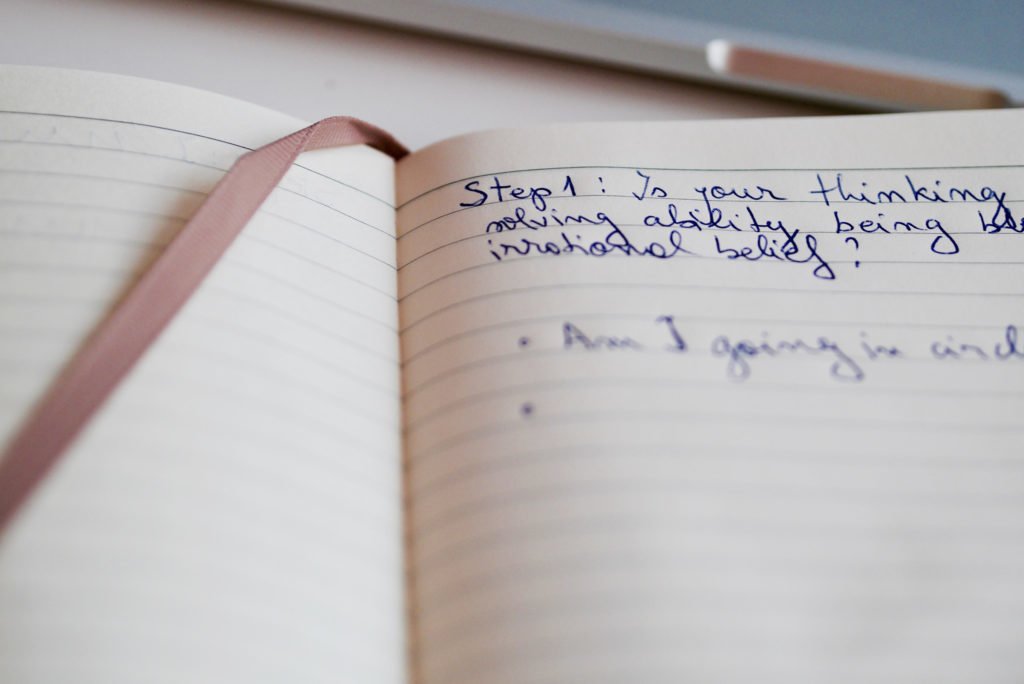 Step 1 : Is your thinking
solving ability being
irrational belief ?
• Am I going in
•